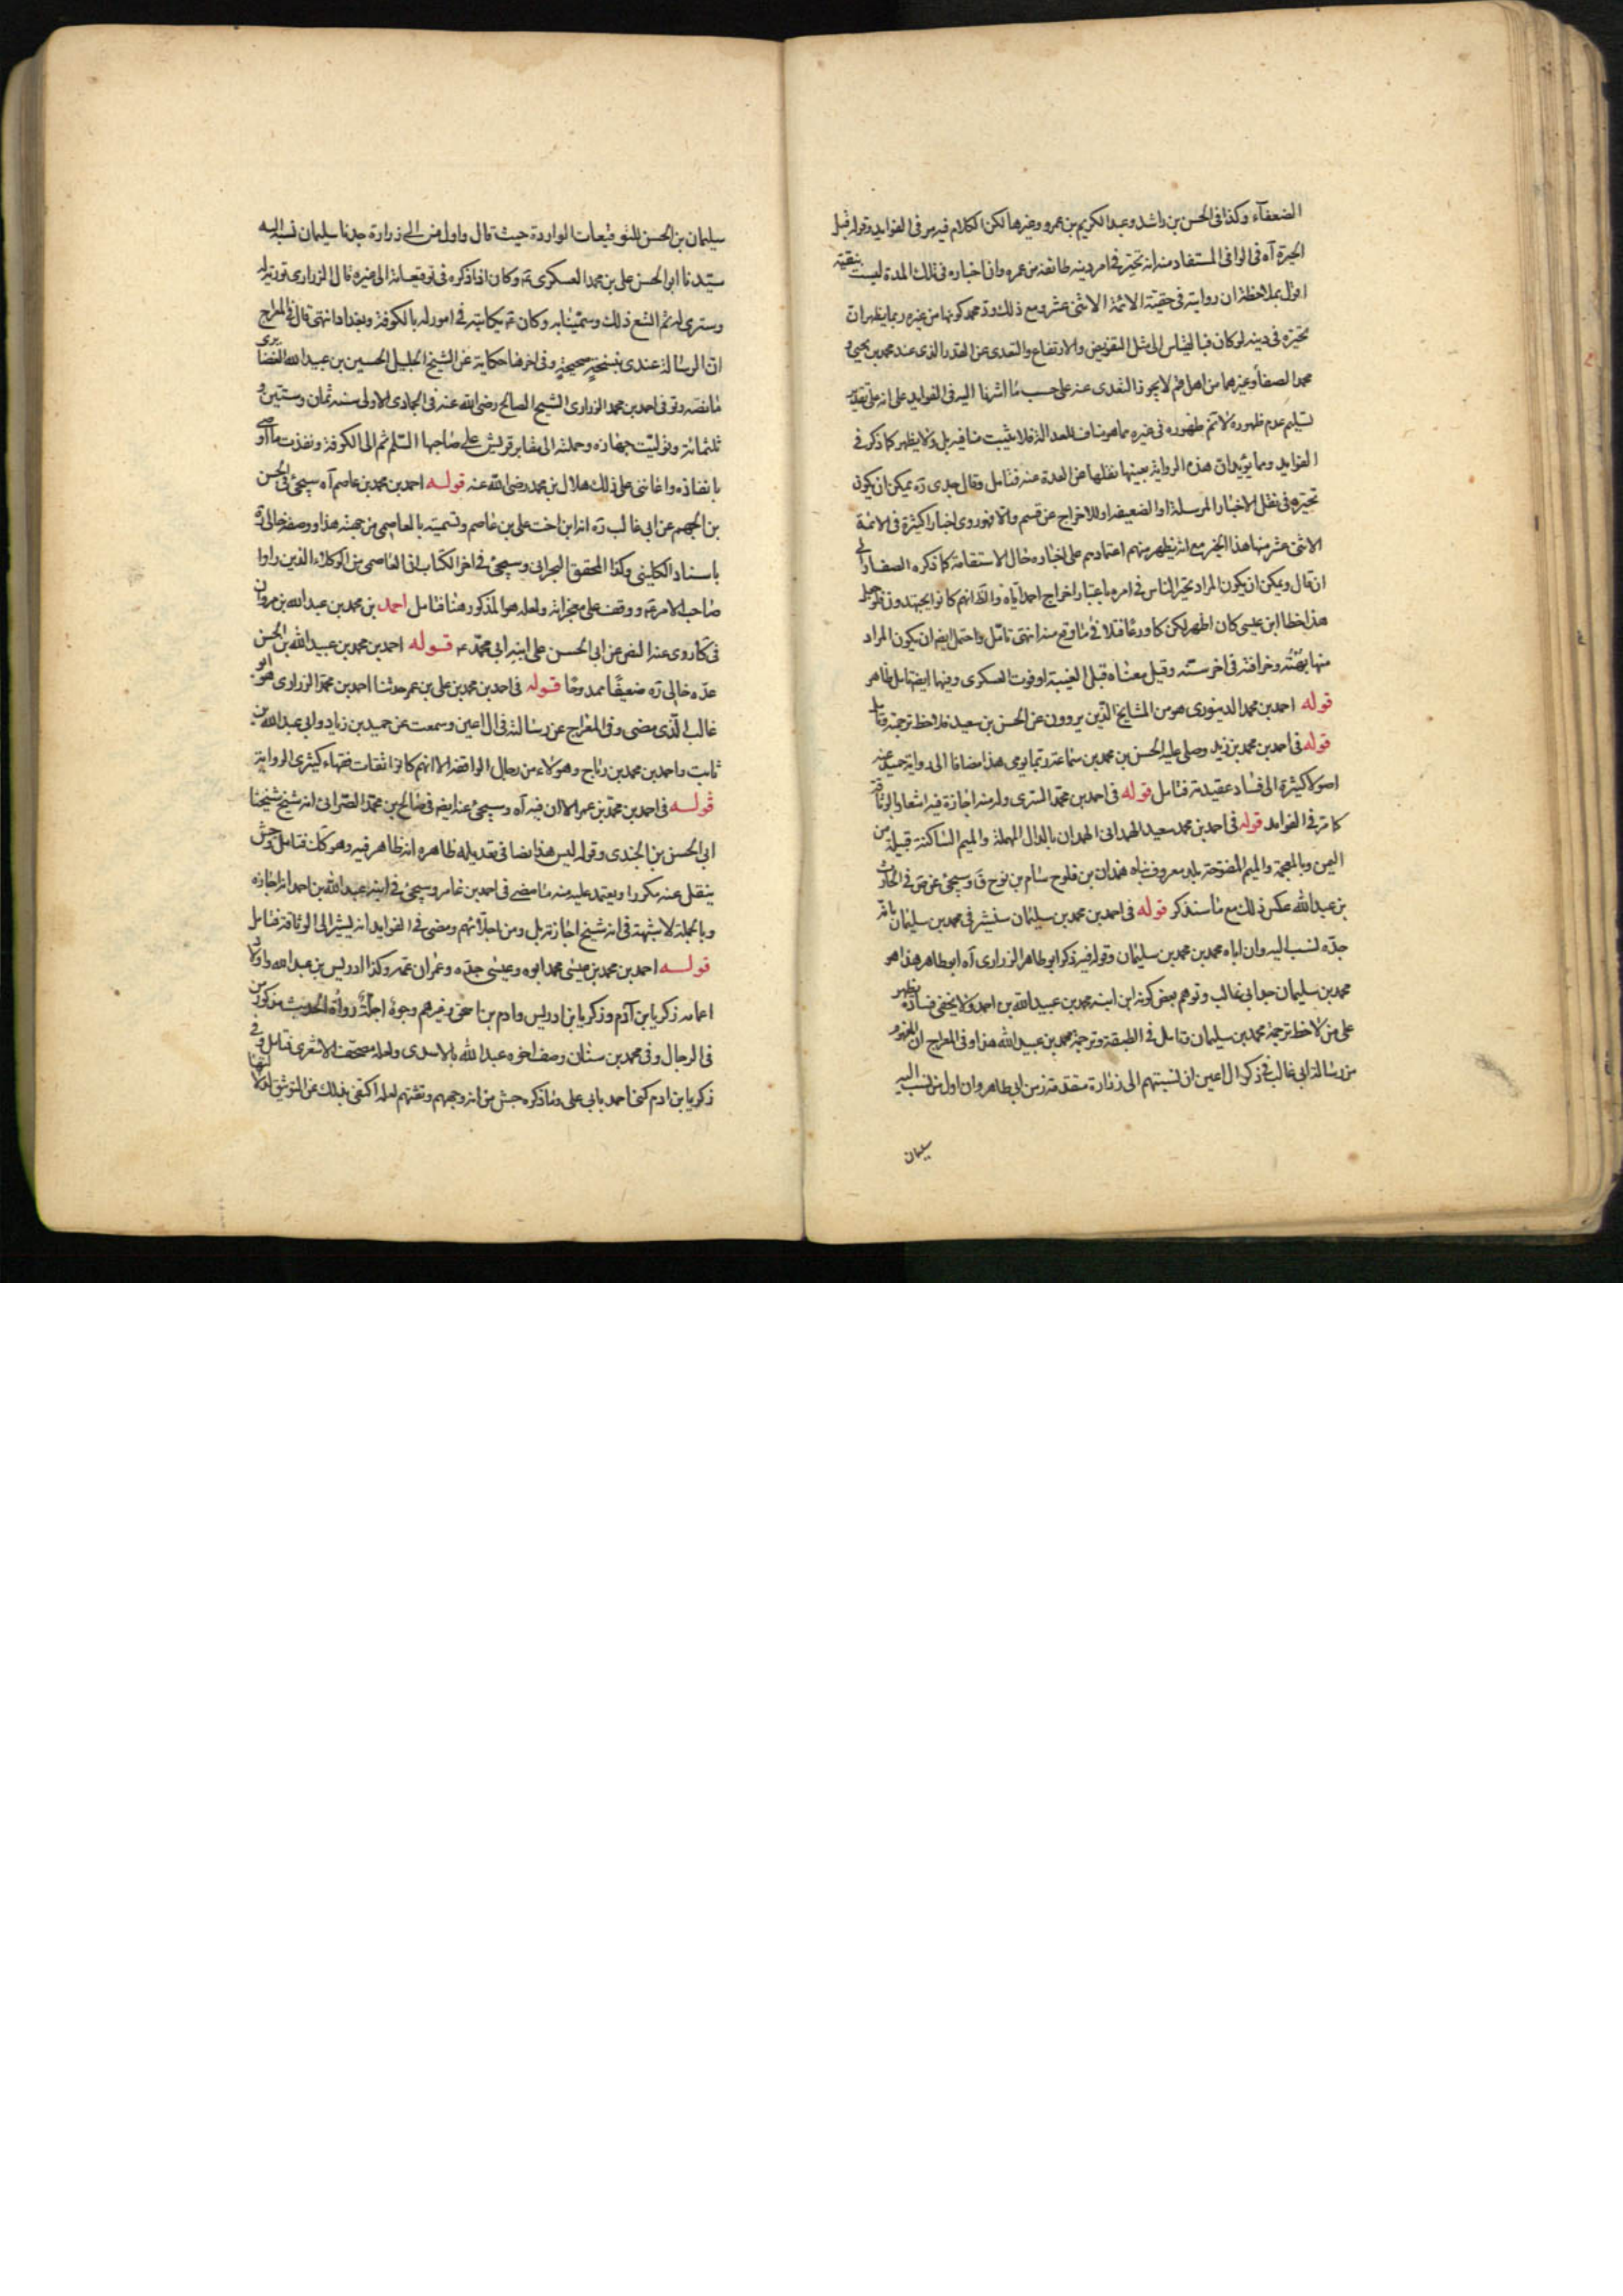 الضعفآء وكذا فى الحسن بن راشد وعبد الكريم بن عمرو وغيرها لكن الكلام فيه مر فى الفوايد وقوله قبل
الحيرة آه فى الوافى المستفاد منه انه تحير فى امر دينه طائفة من عمره وان اخباره فى تلك المدة ليست بنقية
اقول بملاحظة ان روايته فى حقية الائمة الاثنى عشر ومع ذلك ودّ محمد كونها من غيره ربما يظهر ان
تحيره فى دينه لو كان فبالقياس الى مثل التفويض والارتفاع والتعدى عن القدر الذى عند محمد بن يحيى و
محمد الصفار وغيرهما من اهل قم لا يجوز التعدى عنه على حسب ما اشرنا اليه فى الفوايد على انه على تقدير
تسليم عدم ظهوره لا تم ظهوره فى غيره مما هو مناف للعدالة فلا يثبت منافيه بل ولا يظهر كما ذكر فى
الفوايد ومما يؤيد ان هذه الرواية بعينها نقلها عن العدة عنه فتأمل وقال جدى ره يمكن ان يكون
تحيره فى نقل الاخبار المرسلة او الضعيفة او للاخراج عن قم والا فهو روى اخبارا كثيرة فى الائمة
الاثنى عشر منها هذا الخبر مع انه يظهر منهم اعتمادهم على اخباره حال الاستقامة كما ذكره الصفار الى
ان قال ويمكن ان يكون المراد تحير الناس فى امره باعتبار اخراج احمد اياه والظ انهم كانوا يجتهدون
هذا خطا ابن عيسى كان اظهر لكن كا ورعا فلا فى ما وقع منه انتهى تأمل واحتمل ايض ان يكون المراد
منها بهته وخرافته فى اخر سنه وقيل معناه قبل الغيبة او فوت العسكرى وفيها ايض تامل ظاهر
قوله احمد بن محمد الدينورى هو من المشايخ الذين يروون عن الحسن بن سعيد فلاحظ ترجمته وتأمل
قوله فى احمد بن محمد بن زيد وصلى عليه الحسن بن محمد بن سماعة ربما يومى هذا مضافا الى رواية حميد عنه
اصولا كثيرة الى فساد عقيدته فتامل قوله فى احمد بن محمد السرى وله منه اجازة فيه اشعار بالوثاقة
كما مر فى الفوايد قوله فى احمد بن محمد سعيد الهمدانى الهمدان بالدال المهملة والميم الساكنة قبيلة من
اليمن وبالمعجمة والميم المفتوحة بلد معروف بناه همدان بن فلوح سام بن نوح ق وسيجئ عن ض فى الحارث
بن عبد الله عكس ذلك مع ما سنذكر قوله فى احمد بن محمد بن سليمان سنشير فى محمد بن سليمان
جده نسب اليه وان اباه محمد بن محمد بن سليمان وقوله فيه ذكر ابو طاهر الزرارى آه ابو طاهر هذا هو
محمد بن سليمان جد ابى غالب وتوهم بعض كونه ابن ابنه محمد بن عبيد الله بن احمد ولا يخفى فساده يظهر
على من لاحظ ترجمة محمد بن سليمان وتامل فى الطبقة وترجمة محمد بن عبيد الله هذا وفى المعراج ان الظهور
من رسالة ابى غالب فى ذكر ال اعين ان نسبتهم الى زرارة متقدمة زمن ابى طاهر وان اول من نسب اليه
سليمان
سليمان بن الحسن للتوقيعات الواردة حيث قال واول من الى زرارة جدنا سليمان نسبه اليه
سيدنا ابو الحسن على بن محمد العسكرى ع وكان اذا ذكره فى توقيعاته الى غيره قال الزرارى تورية له
وسترى له ثم اتسع ذلك وسمينا به وكان ع يكاتبه فى امور له بالكوفة وبغداد انتهى قال فى المعراج
ان الرسالة عندى بنسخة صحيحة وفى اخرها حكاية عن الشيخ الجليل الحسين بن عبيد الله الغضائرى
ما نصه وتوفى احمد بن محمد الزرارى الشيخ الصالح رضى الله عنه فى الجمادى الاولى سنه ثمان وستين و
ثلثمائة وتوليت جهازه وحملته الى مقابر قريش على صاحبها السلم ثم الى الكوفة ونفذت ما اوصى
بانفاذه واعاننى على ذلك هلال بن محمد رضى الله عنه قوله احمد بن محمد بن عاصم آه سيجئ فى الحسن
بن الجهم عن ابى غالب ره انه ابن اخت على بن عاصم وتسميته بالعاصمى من جهته هذا ووصفه خالى ره
باسناد الكلينى وكذا المحقق البحرانى وسيجئ فى اخر الكتاب ان العاصمى من الوكلاء الذين راوا
صاحب الامر ع ووقف على معجزاته ولعله هو المذكور هنا فتامل احمد بن محمد بن عبد الله بن مروان
فى كا روى عنه النص عن ابى الحسن على ابنه ابى محمد ع قوله احمد بن محمد بن عبيد الله بن الحسن
عده خالى ره ضعيفا ممدوحا قوله فى احمد بن محمد بن على بن عمر حدثنا احمد بن محمد الزرارى هو ابو
غالب الذى مضى وفى المعراج عن رسالته فى ال اعين وسمعت عن حميد بن زياد وابى عبد الله بن
ثابت واحمد بن محمد بن رباح وهؤلاء من رجال الواقفة الا انهم كانوا ثقات فقهاء كثيرى الرواية
قوله فى احمد بن محمد بن عمر الا ان فيه آه وسيجئ عنه ايض فى صالح بن محمد الصرامى انه شيخ شيخنا
ابى الحسن بن الجندى وقوله ليس هذا نصا فى تعديله ظاهره انه ظاهر فيه وهو كك فتامل وجش
ينقل عنه مكررا ويعتمد عليه منه ما مضى فى احمد بن عامر وسيجئ فى ابنه عبد الله بن احمد انه اجازه
وبالجملة لا شبهة فى انه شيخ اجازته بل ومن اجلائهم ومضى فى الفوايد انه يشير الى الوثاقة فتامل
قوله احمد بن محمد بن عيسى محمد ابوه وعيسى جده وعمران عمه وكذا ادريس بن عبد الله واولاد
اعمامه زكريا بن آدم وزكريا بن ادريس وادم بن اسحق وغيرهم وجوه اجلة رواة الحديث مذكورون
فى الرجال وفى محمد بن سنان وصف اخوه عبد الله بالاسدى ولعله مصحف الاشعرى فتامل وفى
زكريا بن ادم كنى احمد بابى على وما ذكره جش من انه وجههم وثقتهم لعله اكتفى بذلك عن التوثيق اولا